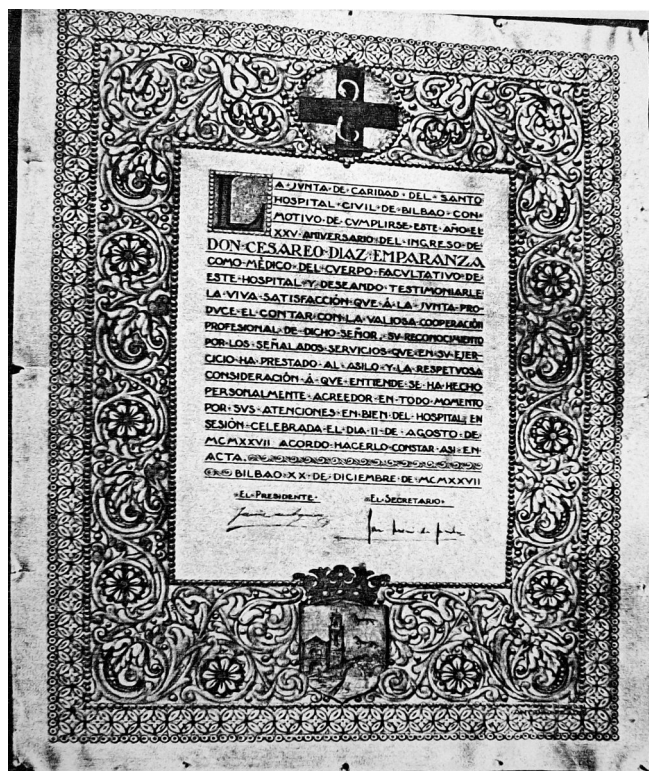 LA·JVNTA·DE·CARIDAD·DEL·SANTO
HOSPITAL·CIVIL·DE·BILBAO·CON·
MOTIVO·DE·CVMPLIRSE·ESTE·AÑO·EL
XXV·ANIVERSARIO·DEL·INGRESO·DE
DON·CESAREO·DIAZ·EMPARANZA
COMO·MÉDICO·DEL·CVERPO·FACVLTATIVO·DE
ESTE·HOSPITAL·Y·DESEANDO·TESTIMONIARLE
LA·VIVA·SATISFACCIÓN·QVE·Á·LA·JVNTA·PRO-
DVCE·EL·CONTAR·CON·LA·VALIOSA·COOPERACIÓN
PROFESIONAL·DE·DICHO·SEÑOR, SV·RECONOCIMIENTO
POR·LOS·SEÑALADOS·SERVICIOS·QVE·EN·SV·EJER-
CICIO·HA·PRESTADO·AL·ASILO·Y·LA·RESPETVOSA
CONSIDERACIÓN·Á·QVE·ENTIENDE·SE·HA·HECHO
PERSONALMENTE·ACREEDOR·EN·TODO·MOMENTO
POR·SVS·ATENCIONES·EN·BIEN·DEL·HOSPITAL, EN
SESIÓN·CELEBRADA·EL·DIA·11·DE·AGOSTO·DE·
MCMXXVII ACORDO·HACERLO·CONSTAR·ASI·EN·
ACTA·
BILBAO·XX·DE·DICIEMBRE·DE·MCMXXVII
·EL·PRESIDENTE· ·EL·SECRETARIO·